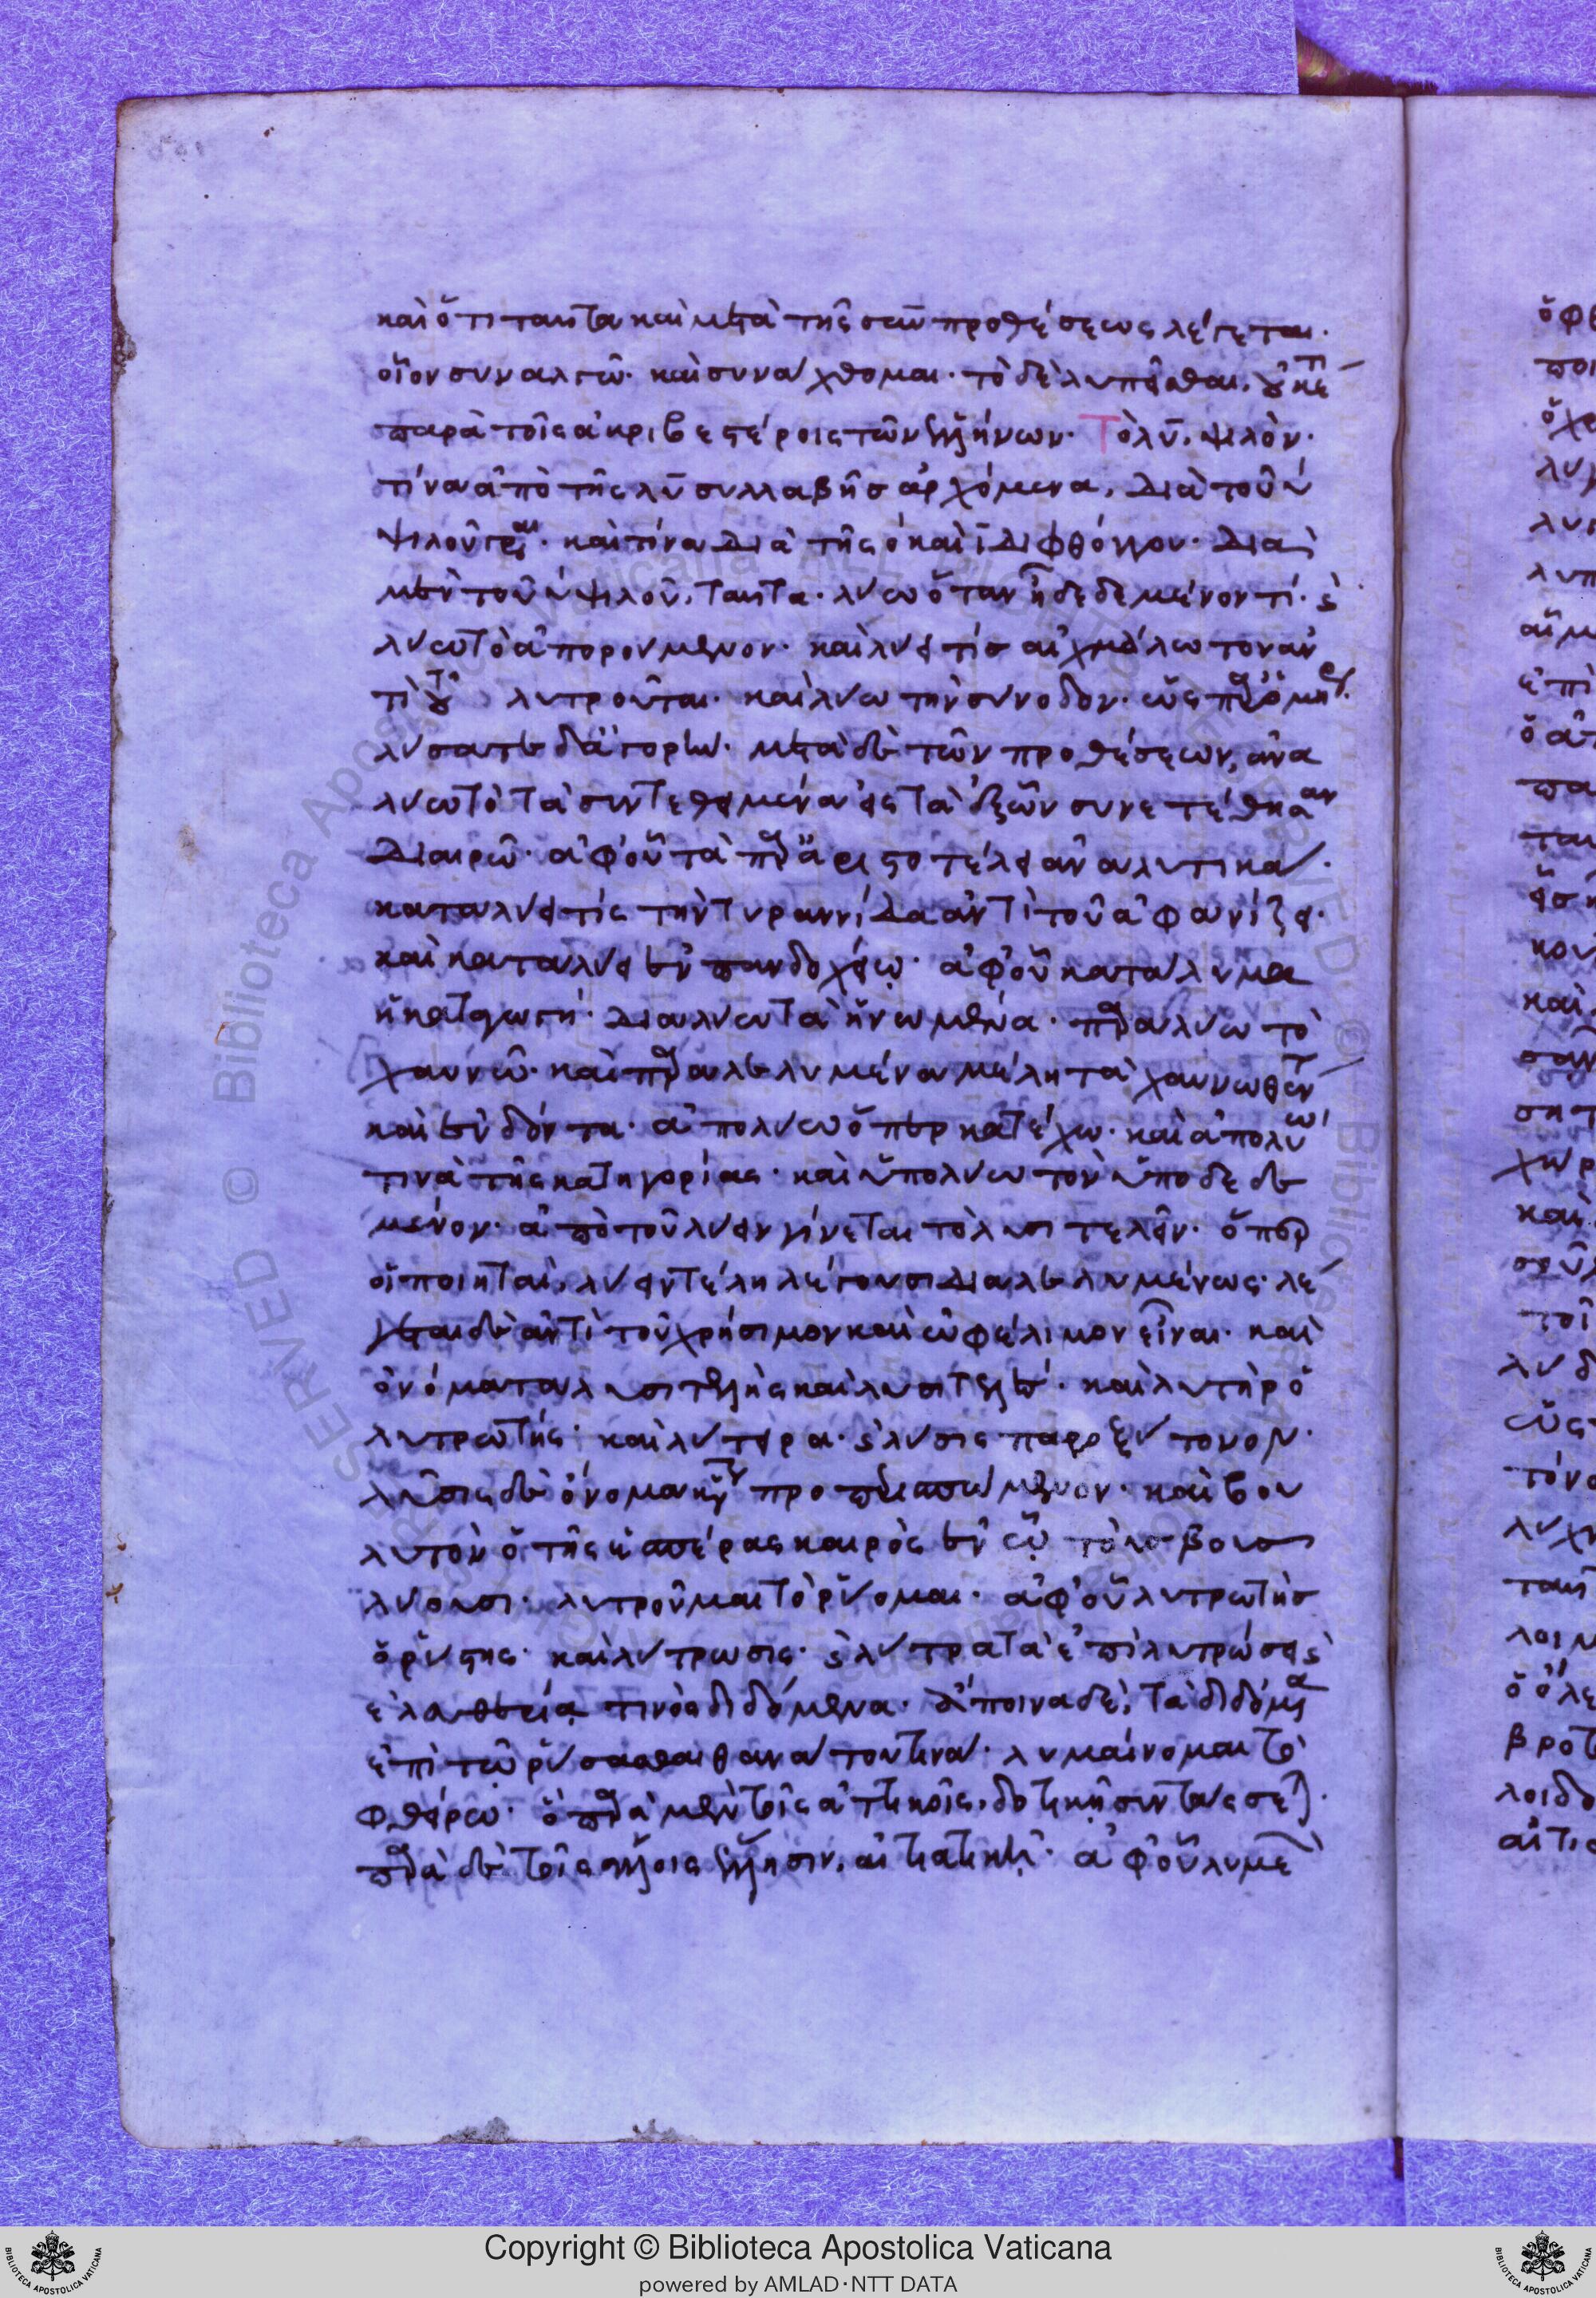 καὶ ὅτι ταῦτα καὶ μετὰ τῆς σὺν προθέσεως λέγεται·
οἷον συναλγῶ· καὶ συνάχθομαι· τὸ δὲ λυπεῖσθαι,
παρὰ τοῖς ἀκριβεστέροις τῶν ἑλλήνων· Τὸ λῡ, ψιλὸν·
τίνα ἀπὸ τῆς λῡ συλλαβῆς ἀρχόμενα, διὰ τοῦ ὐ
ψιλοῦ γρ αι· καὶ τίνα διὰ τῆς ο καὶ ῑ διφθόγγου· διὰ
μὲν τοῦ ὐ ψιλοῦ, ταῦτα· λύω ὅταν ᾖ δεδεμένον τί· ϗ
λύω τὸ ἀπορούμενον· καὶ λύει τίς αἰχμάλωτον ἀν
τὶ τοῦ λυτροῦται· καὶ λύω τὴν σύνοδον· ὡς παρ' ὁμή
λῦσαν δ' ἀγορήν· μετὰ δὲ τῶν προθέσεων, ἀνα
λύω τὸ τὰ συντεθειμένα εἰς τὰ ἐξ ὧν συνετέθησαν
διαιρῶ· ἀφ' οὗ τὰ παρὰ ἀριστοτέλει ἀναλυτικά·
καταλύει τίς τὴν τυραννίδα ἀντὶ τοῦ ἀφανίζει·
καὶ καταλύει ἐν πανδοχείῳ· ἀφ' οὗ κατάλυμα
ἡ καταγωγή· διαλύω τὰ ἡνωμένα· παραλύω τὸ
χαυνῶ· καὶ παραλελυμένα μέλη τὰ χαυνωθέντ
καὶ ἐνδόντα· ἀπολύω ὅπερ κατέχω· καὶ ἀπολύω
τινὰ τῆς κατηγορίας· καὶ ὑπολύω τὸν ὑποδεδε
μένον· ἀπὸ τοῦ λύειν γίνεται τὸ λυσιτελεῖν· ὅπερ
οἱ ποιηταὶ, λύειν τέλη λέγουσι διαλελυμένως· λέ
γεται δὲ ἀντὶ τοῦ χρήσιμον καὶ ὠφέλιμον εἶναι· καὶ
ὀνόματα λυσιτελὴς καὶ λυσιτελές· καὶ λυτὴρ ὁ
λυτρωτής· καὶ λύτειρα· ϗ λύσις παροξύτονον·
λῦσις δὲ ὄνομα προπερισπώμενον· καὶ βου
λυτὸν ὁ τῆς ἑσπέρας καιρὸς ἐν ᾧ τοὺς βοῦς
λύουσι· λυτροῦμαι τὸ ῥύομαι· ἀφ' οὗ λυτρωτὴς
ὁ ῥύστης· καὶ λύτρωσις· ϗ λύτρα τὰ ἐπὶ λυτρώσει ϗ
ἐλευθερίᾳ τινὸς διδόμενα· ἄποινα δὲ, τὰ διδόμενα
ἐπὶ τῷ ῥύσασθαι θανάτου τινά· λυμαίνομαι τὸ
φθείρω· ὃ παρὰ μὲν τοῖς ἀττικοῖς, δοτικῇ συντάσσε
παρὰ δὲ τοῖς ἄλλοις ἕλλησιν, αἰτιατικῇ· ἀφ' οὗ λυμε